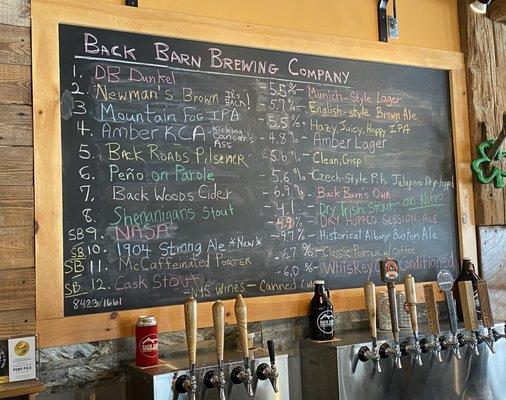 Back Barn Brewing Company
1. DB Dunkel - 5.5% - Munich-Style Lager
2. Newman's Brown It's BACK! - 5.7% - English-style Brown Ale
3 Mountain Fog IPA - 5.5% - Hazy, Juicy, Hoppy IPA
4. Amber KCA - Kicking Cancer's Ass - 4.8% - Amber Lager
5. Back Roads Pilsener - 5.6% - Clean, Crisp
6. Peño on Parole - 5.6% - Czech-Style Pils Jalapeno Dry-hopped
7. Back Woods Cider - 6.9% - Back Barn's Own
8. Shenanigans Stout - 4.1 - Dry Irish Stout - on Nitro
SB 9. NASA - 4.9% - DRY HOPPED SESSION ALE
SB 10. 1904 Strong Ale *New* - 9.7% - Historical Albany Burton Ale
SB 11. McCaffeinated Porter - 6.7% - Classic Porter w/ Coffee
SB 12. Cask Stout - 6.0% - Whiskey Oak Conditioned
8423/1661 - NYS Wines - Canned